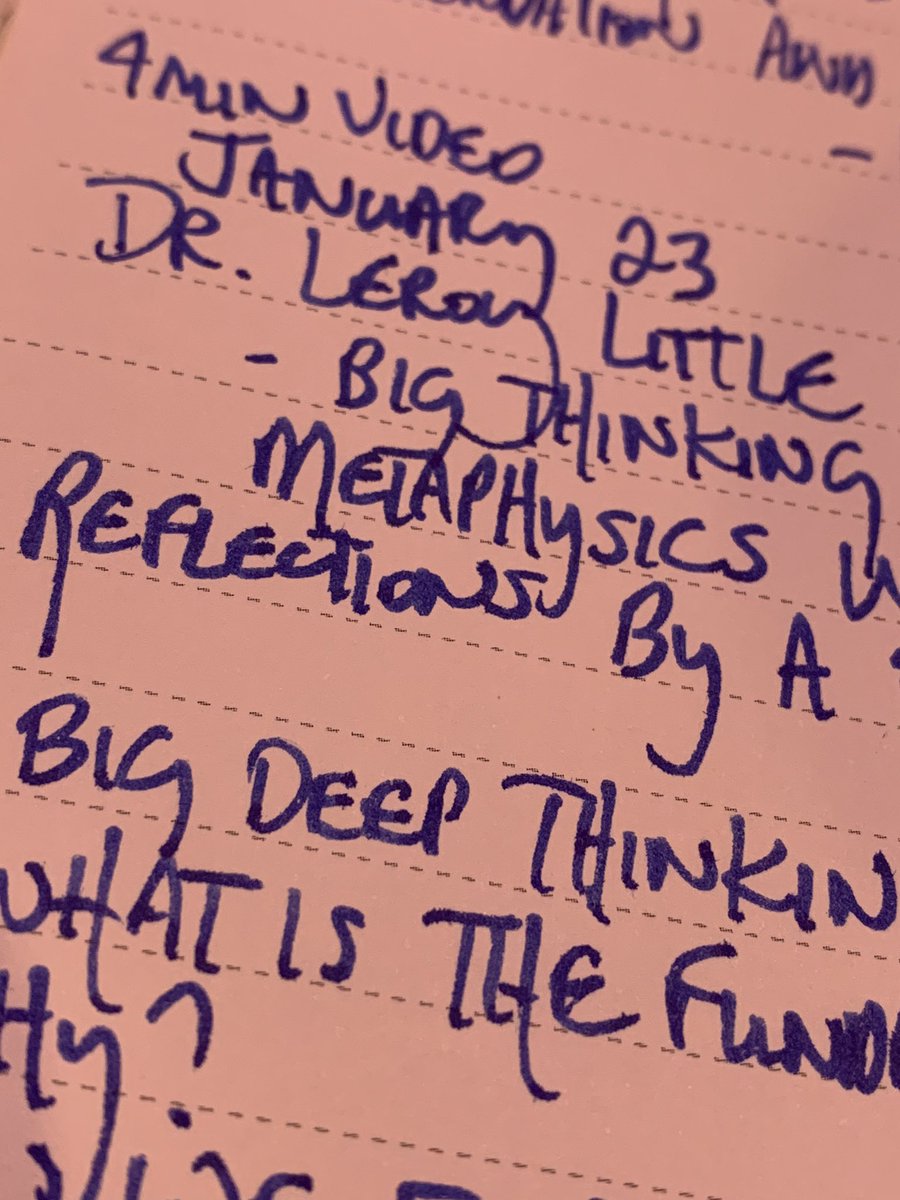 4 MIN VIDEO
JANUARY 23
DR. LEROY LITTLE
- BIG THINKING
METAPHYSICS
REFLECTIONS BY A
BIG DEEP THINKIN
WHAT IS THE FUND
HY?